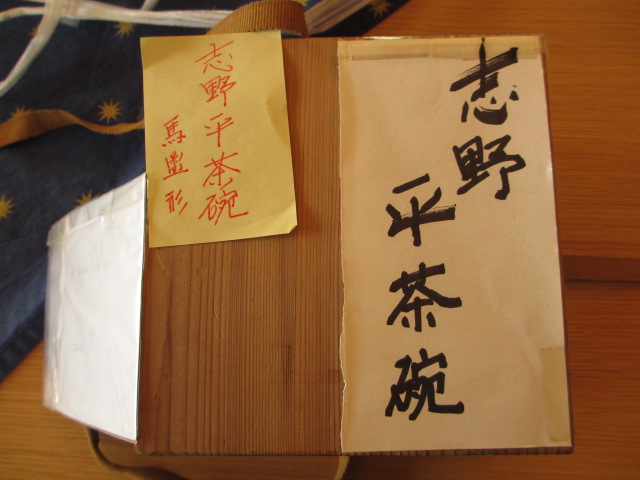 志野
平茶碗
志野平茶碗
馬盥形